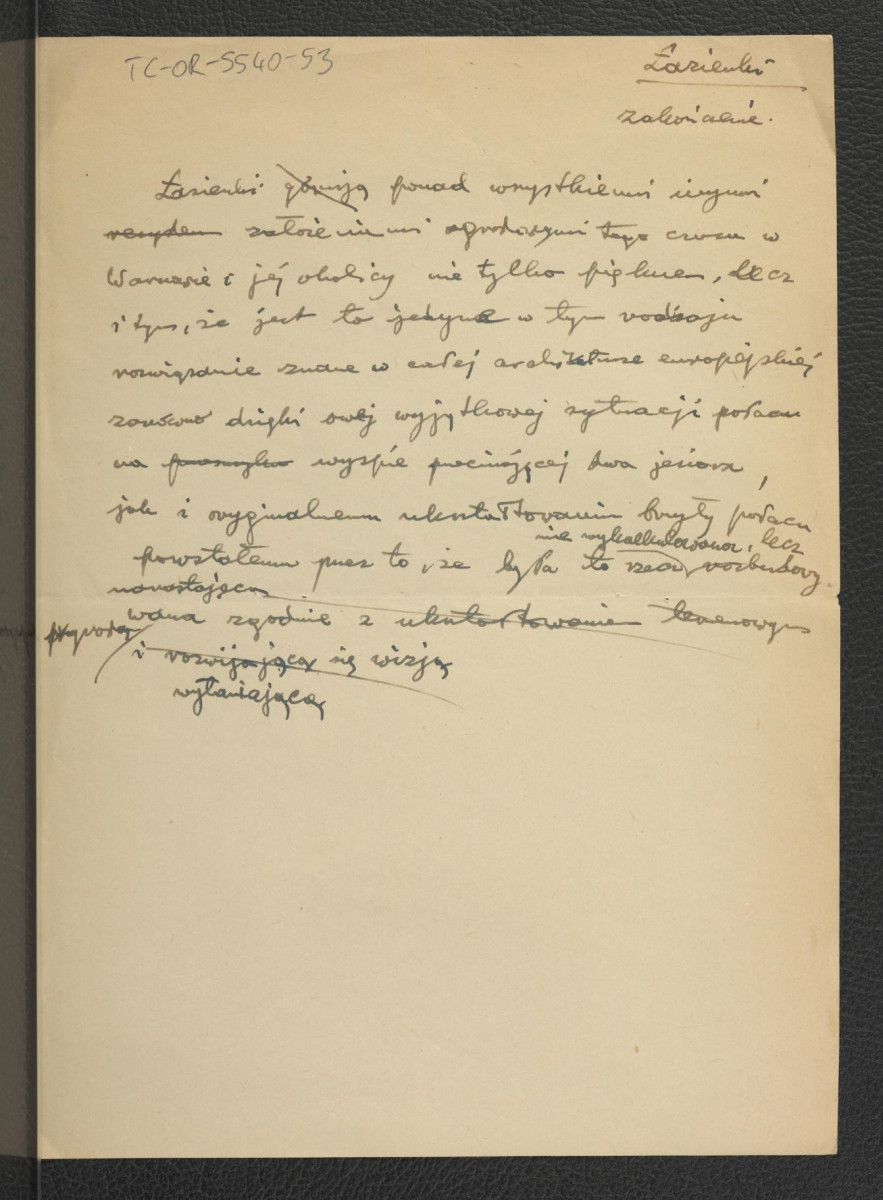 TC-OR-5540-53
Łazienki
zakończenie.
Łazienki górują ponad wszystkiemi innymi
rezyden założeniami ogrodowymi tego czasu w
Warszawie i jej okolicy nie tylko pięknem, lecz
i tym, że jest to jedyne w tym rodzaju
rozwiązanie znane w całej architekturze europejskiej
zarówno dzięki swej wyjątkowej sytuacji pałacu
na wyspie przecinającej dwa jeziora,
jak i oryginalnemu ukształtowaniu bryły pałacu
nie wykalkulowana, lecz
powstałemu przez to, że była to rozbudowy
narastająca
wana zgodnie z ukształtowaniem terenowym
przyrodą
i rozwijającą się wizją
wyłaniającą